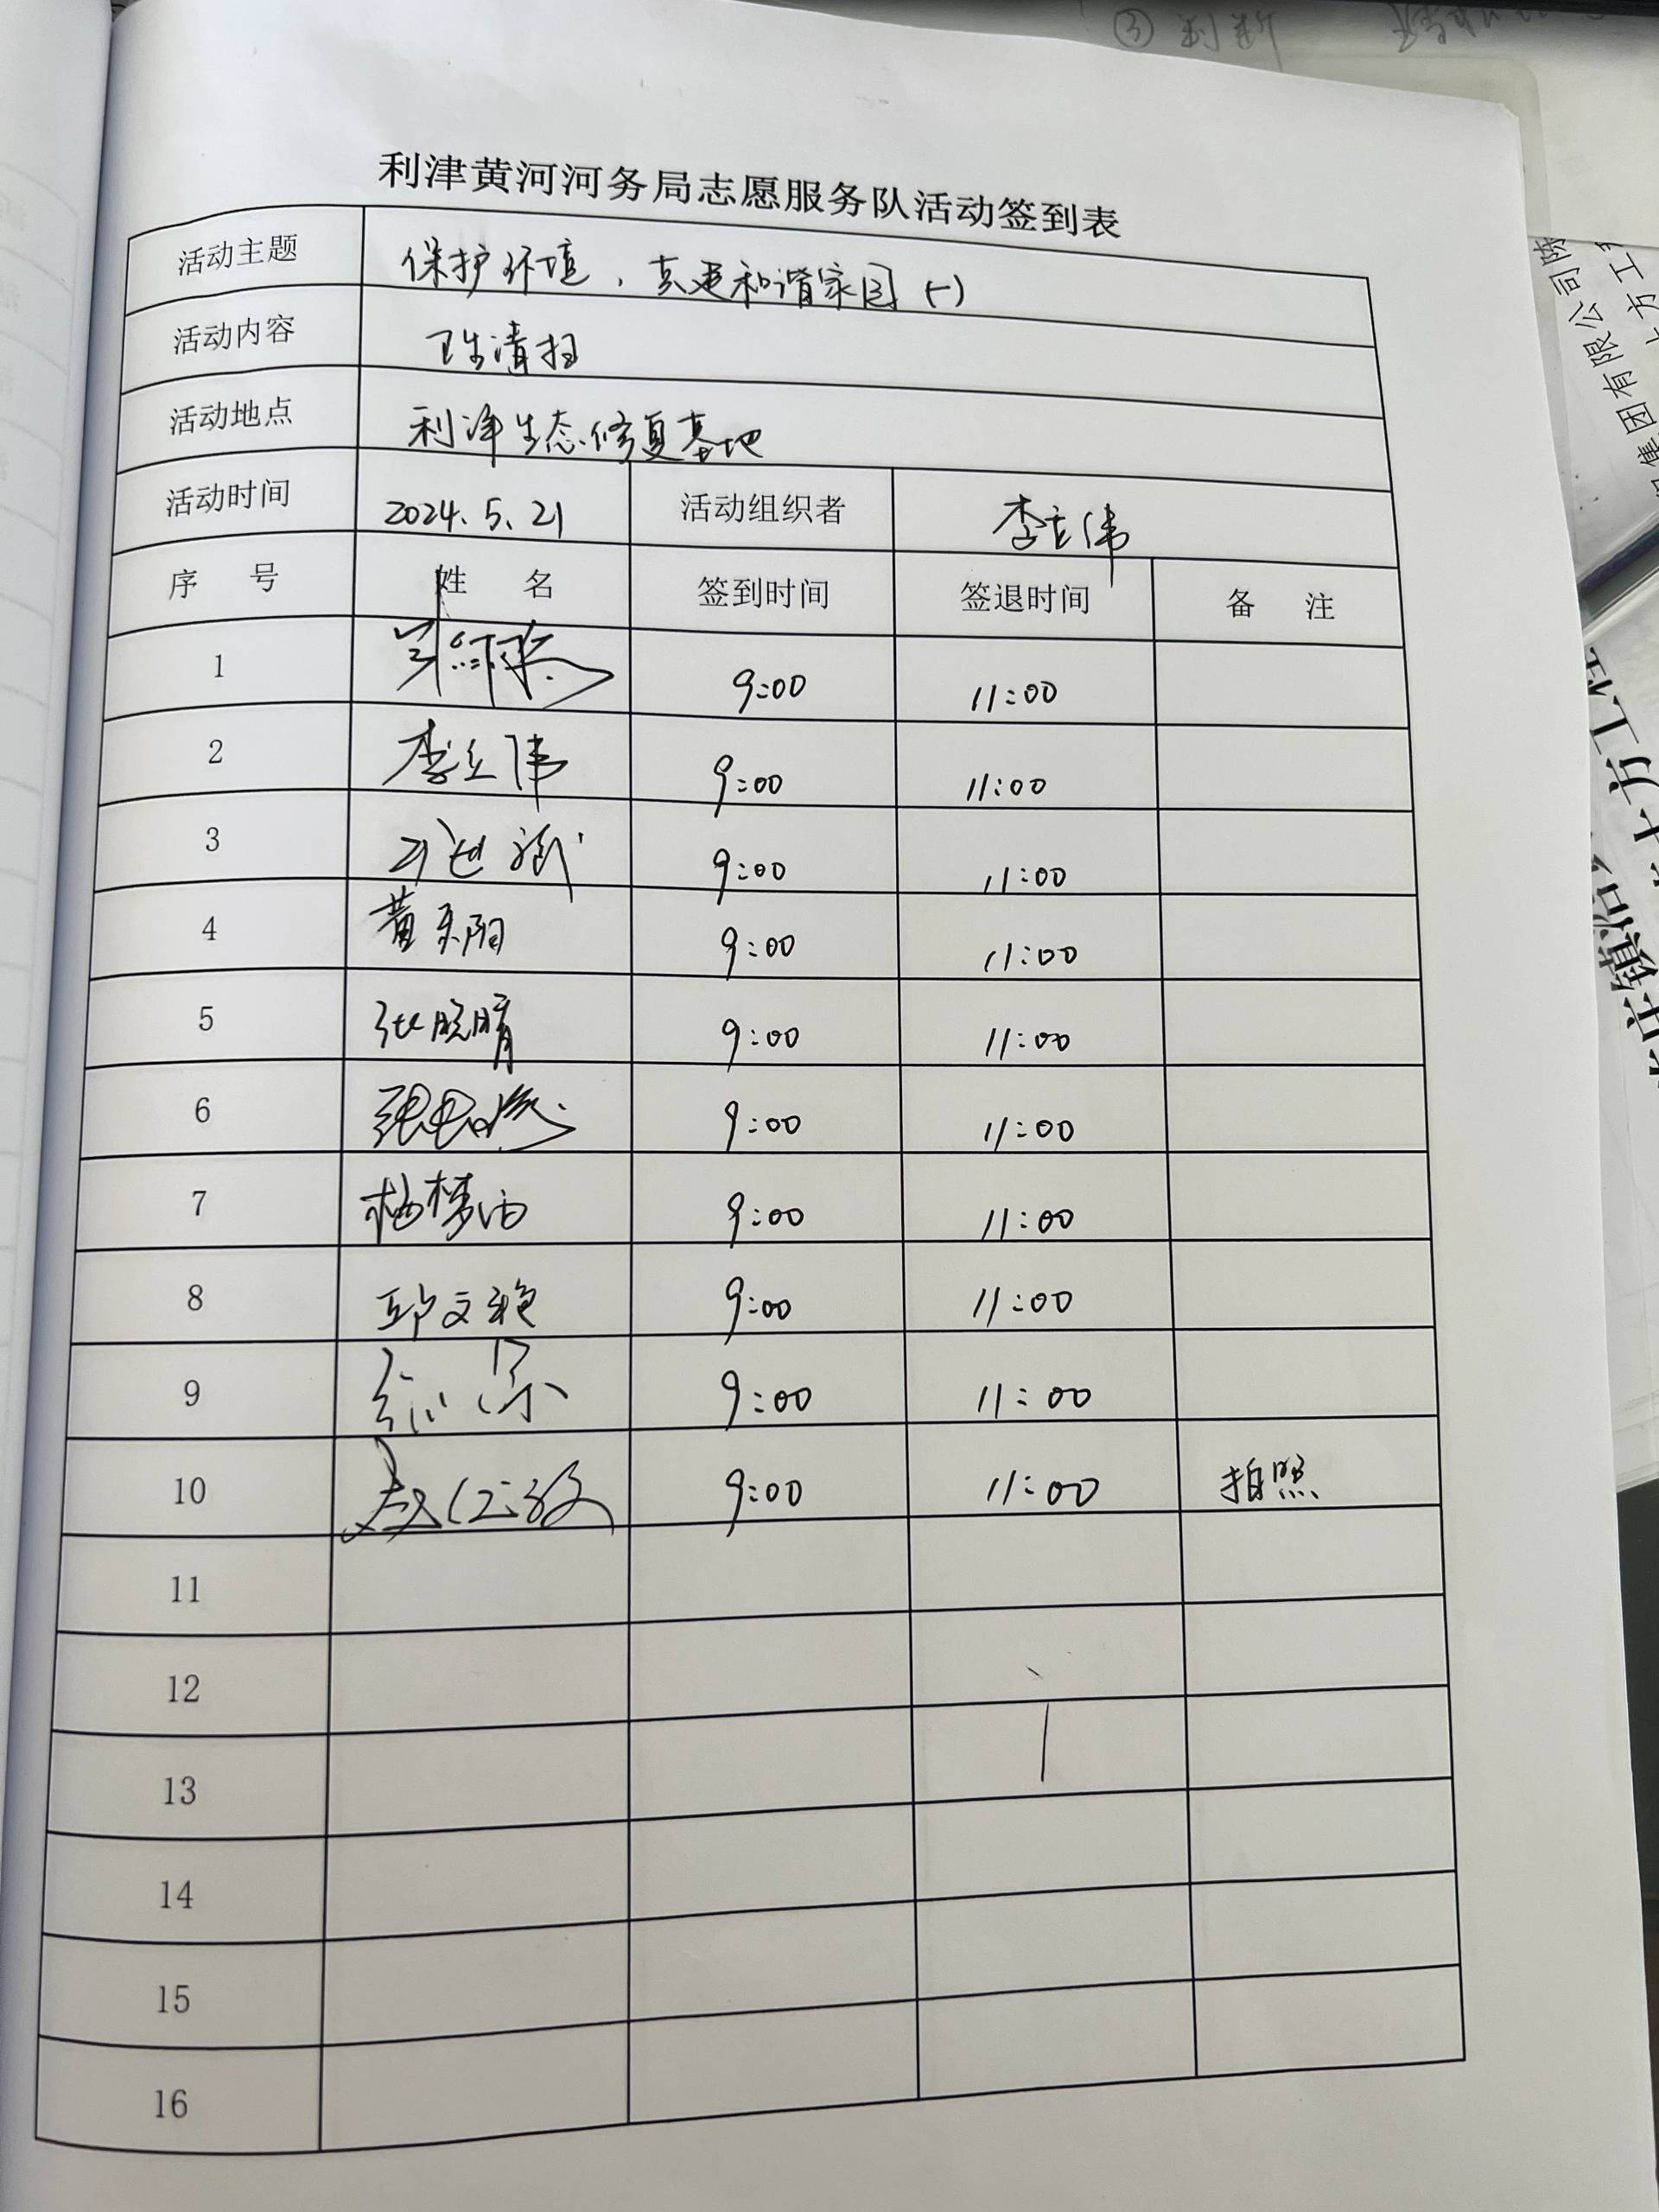 ③ 判断
利津黄河河务局志愿服务队活动签到表
活动主题 保护环境，共建和谐家园（一）
活动内容 卫生清扫
活动地点 利津生态修复基地
活动时间 2024.5.21 活动组织者 李立伟
序 号 姓 名 签到时间 签退时间 备 注
1 9:00 11:00
2 李立伟 9:00 11:00
3 9:00 11:00
4 黄东阳 9:00 11:00
5 张晓晴 9:00 11:00
6 9:00 11:00
7 杨梦雨 9:00 11:00
8 邱文艳 9:00 11:00
9 9:00 11:00
10 赵 9:00 11:00 拍照
11
12
13
14
15
16
集团有限公司
土方工
土方工程